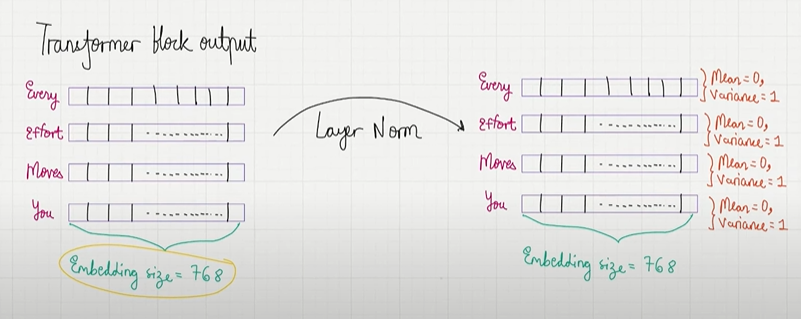 Transformer block output
Every
Effort
Moves
You
Embedding size = 768
Layer Norm
Every
Mean = 0,
Variance = 1
Effort
Mean = 0,
Variance = 1
Moves
Mean = 0,
Variance = 1
You
Mean = 0,
Variance = 1
Embedding size = 768